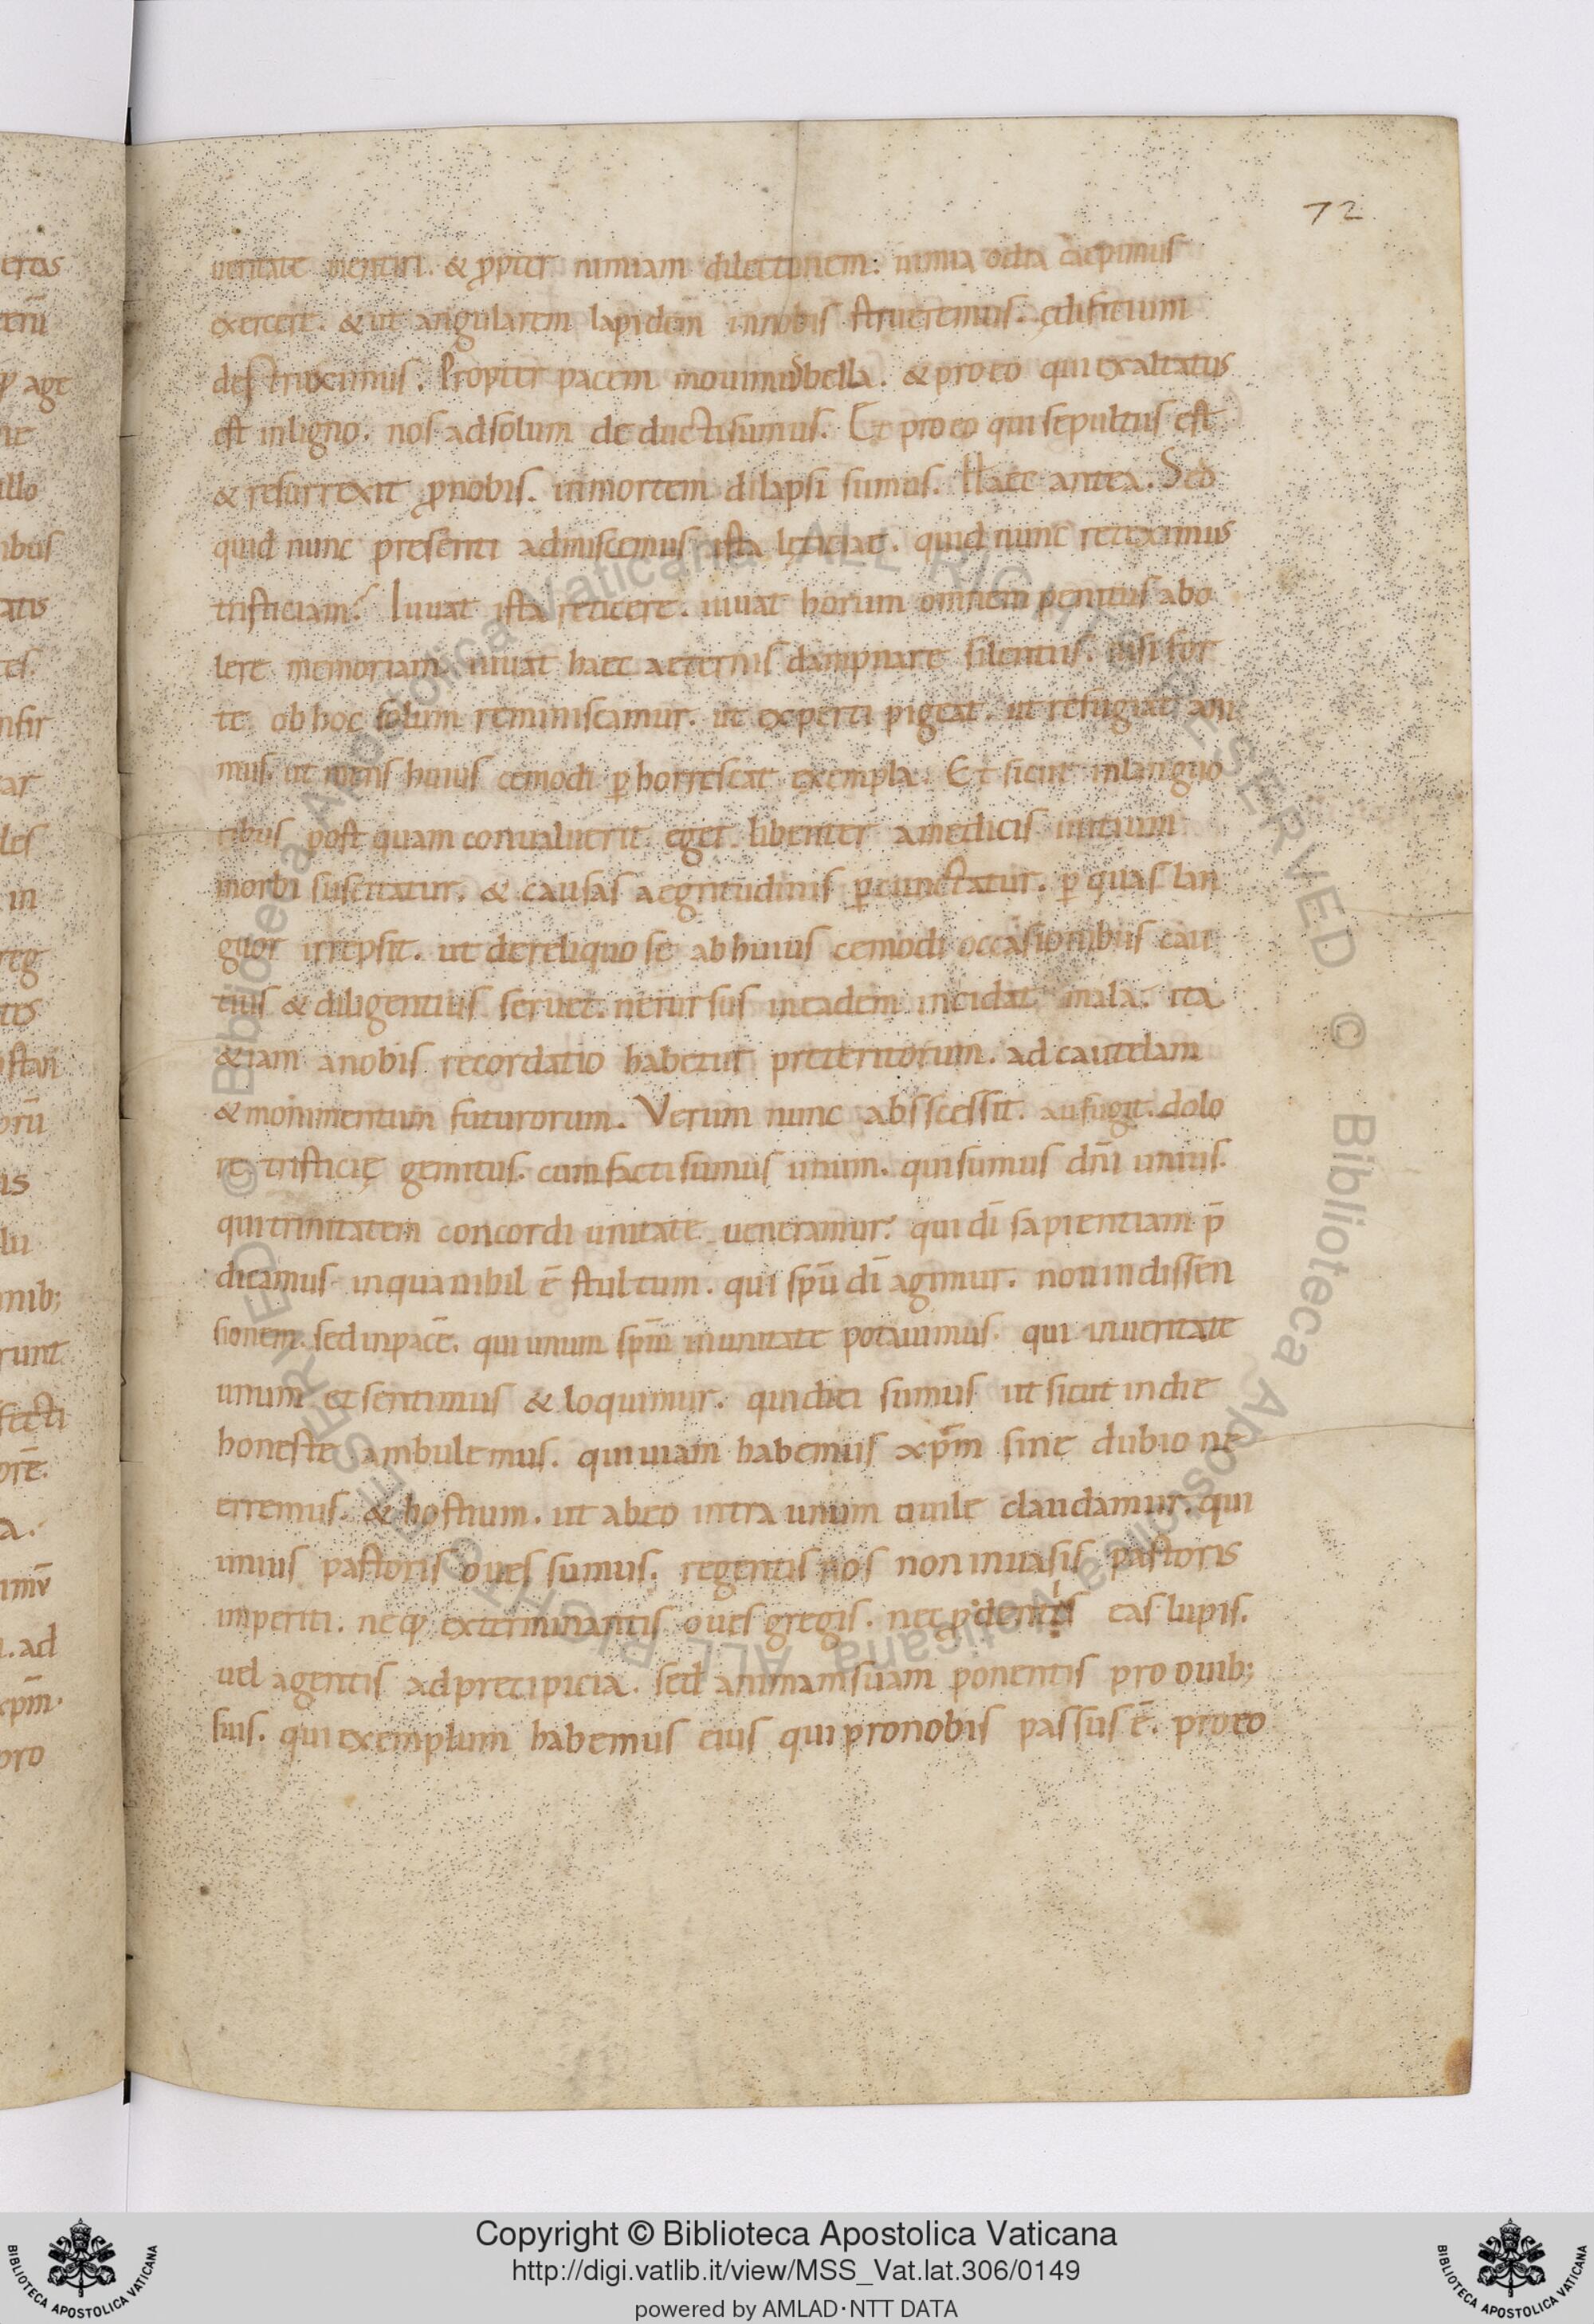 72
ueritate mentiri. & ꝓpter nimiam dilectionem: nimia odia caepimus
exercere. & ut angularem lapidem innobis strueremus. ędificium
destruximus. Propter pacem mouimus bella. & proeo quiexaltatus
est inligno. nos adsolum deductisumus. Et proeo quisepultus est
& resurrexit ꝓnobis. inmortem dilapsi sumus. Haec antea. Sed
quid nunc presenti admiscemus ista lęticiae. quid nunc reteximus
tristiciam? Iuuat ista reticere. iuuat horum omnem penitus abo
lere memoriam. iuuat haec aeternis dampnare silentiis. nisi for
te ob hoc solum reminiscamur. ut experti pigeat. ut refugiat ani
mus. ut mens huius cemodi ꝑhorrescat exempla. Et sicut inlanguo
ribus post quam conualuerit eger. libenter amedicis initium
morbi suscitatur. & causas aegritudinis ꝑcunctatur. ꝑ quas lan
guor irrepsit. ut dereliquo se ab huius cemodi occasionibus cau
tius & diligentius seruet. nerursus ineadem incidat mala. ita
&iam anobis recordatio habetur preteritorum. ad cautelam
& monimentum futurorum. Verum nunc absscessit. aufugit. dolo
re tristicię gemitus. cumfactisumus unum. quisumus dn̄i unius.
quitrinitatem concordi unitate ueneramur. qui dī sapientiam p̄
dicamus inquanihil ē stultum. qui spū dī agimur. nonindissen
sionem. sedinpacē. qui unum spm̄ inunitate potauimus. qui inueritate
unum et sentimus & loquimur. quidiei sumus ut sicut indie
honeste ambulemus. quiuiam habemus xp̄m sine dubio ne
erremus. & hostium. ut abeo intra unum ouile claudamur. qui
unius pastoris oues sumus. regentis nos noninuasis pastoris
imperiti. neqꝫ exterminantis oues gregis. nec pdentis eas lupis.
uel agentis adprecipicia. sed animamsuam ponentis pro ouib;
suis. quiexemplum habemus eius quipronobis passus ē. proeo
Copyright © Biblioteca Apostolica Vaticana
http://digi.vatlib.it/view/MSS_Vat.lat.306/0149
powered by AMLAD·NTT DATA